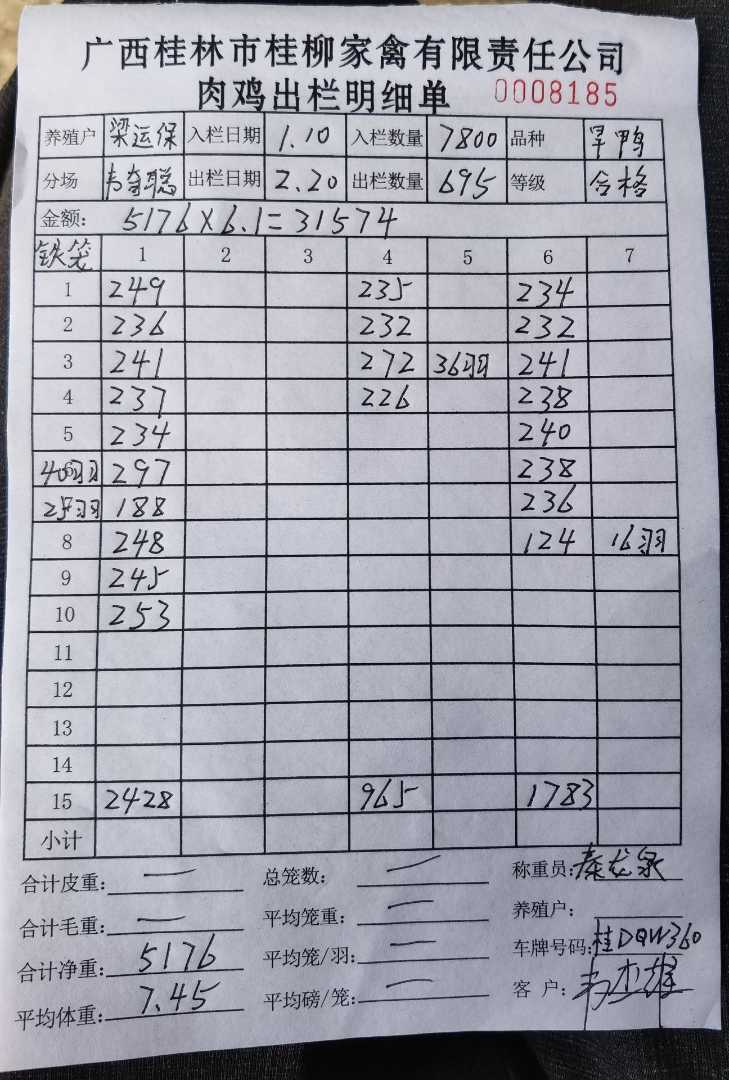 广西桂林市桂柳家禽有限责任公司
肉鸡出栏明细单 0008185
养殖户 梁运保 入栏日期 1.10 入栏数量 7800 品种 旱鸭
分场 韦奇聪 出栏日期 2.20 出栏数量 695 等级 合格
金额: 5176×6.1=31574
铁笼 1 2 3 4 5 6 7
1 249 235 234
2 236 232 232
3 241 272 36羽 241
4 237 226 238
5 234 240
40羽 297 238
25羽 188 236
8 248 124 16羽
9 245
10 253
11
12
13
14
15 2428 965 1783
小计
合计皮重: — 总笼数: — 称重员: 秦龙泉
合计毛重: — 平均笼重: — 养殖户:
合计净重: 5176 平均笼/羽: — 车牌号码: 桂DQW360
平均体重: 7.45 平均磅/笼: — 客户: